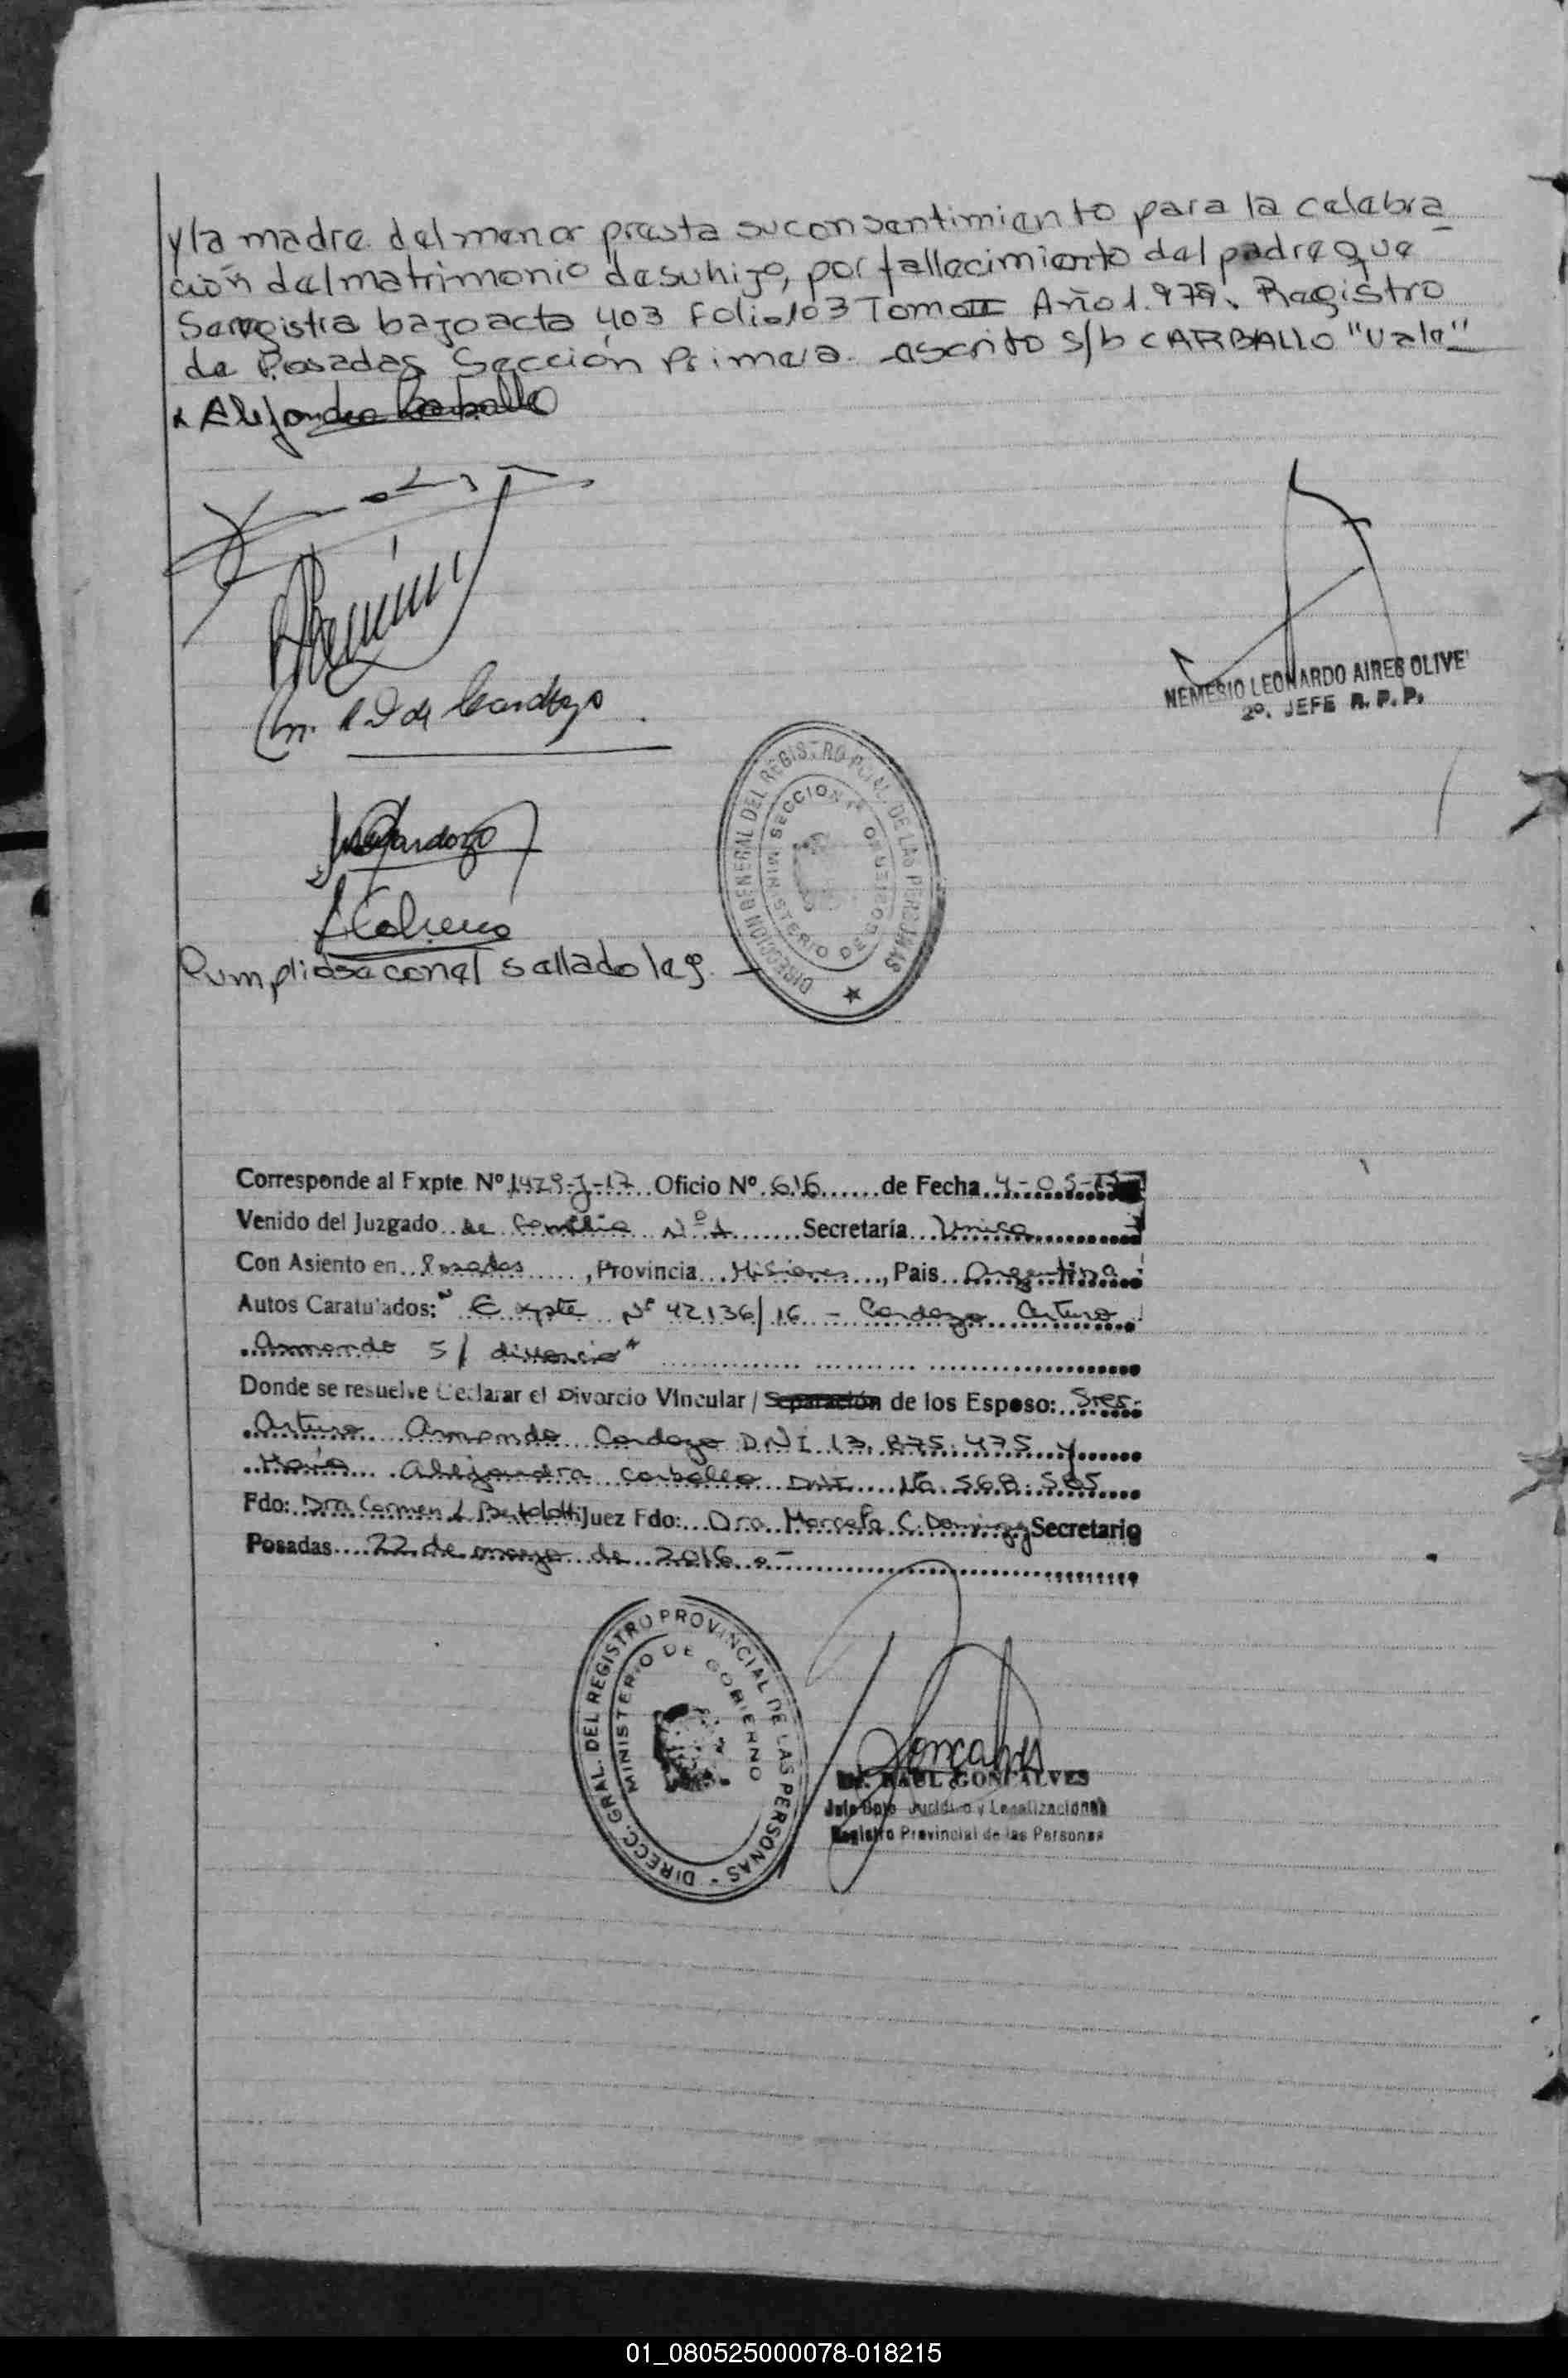 y la madre del menor presta su consentimiento para la celebra_
ción del matrimonio de su hijo, por fallecimiento del padre que
Se registra bajo acta 403 Folio 103 Tomo II Año 1.979. Registro
de Posadas Sección Primera. -escrito s/b CARBALLO "Vale"
x Alejandra Carballo
NEMESIO LEONARDO AIRES OLIVE
2º. JEFE R. P. P.
de Cardozo
Cardozo
DIRECCION GENERAL DEL REGISTRO PCIAL. DE LAS PERSONAS
MINISTERIO DE GOBIERNO SECCION 1ª
Cumpliose con el sellado ley. -
Corresponde al Expte Nº 1429-J-17 Oficio Nº 616 de Fecha 4-05-17
Venido del Juzgado de Familia Nº 1 Secretaría Unica
Con Asiento en Posadas, Provincia Misiones, Pais Argentina
Autos Caratulados: " Expte Nº 42136/16 - Cardozo Arturo
Armando s/ divorcio"
Donde se resuelve Declarar el Divorcio Vincular / Separación de los Esposo: Sres.
Arturo Armando Cardozo DNI 13.875.475 y
María Alejandra Carballo DNI 16.568.585
Fdo: Dra Carmen L Bertolotti Juez Fdo: Dra. Marcela C. Secretario
Posadas 22 de mayo de 2016.-
DIRECC. GRAL. DEL REGISTRO PROVINCIAL DE LAS PERSONAS -
MINISTERIO DE GOBIERNO
Goncalves
Dr. RAUL GONCALVES
Jefe Dpto Jurídico y Legalizaciones
Registro Provincial de las Personas
01_080525000078-018215